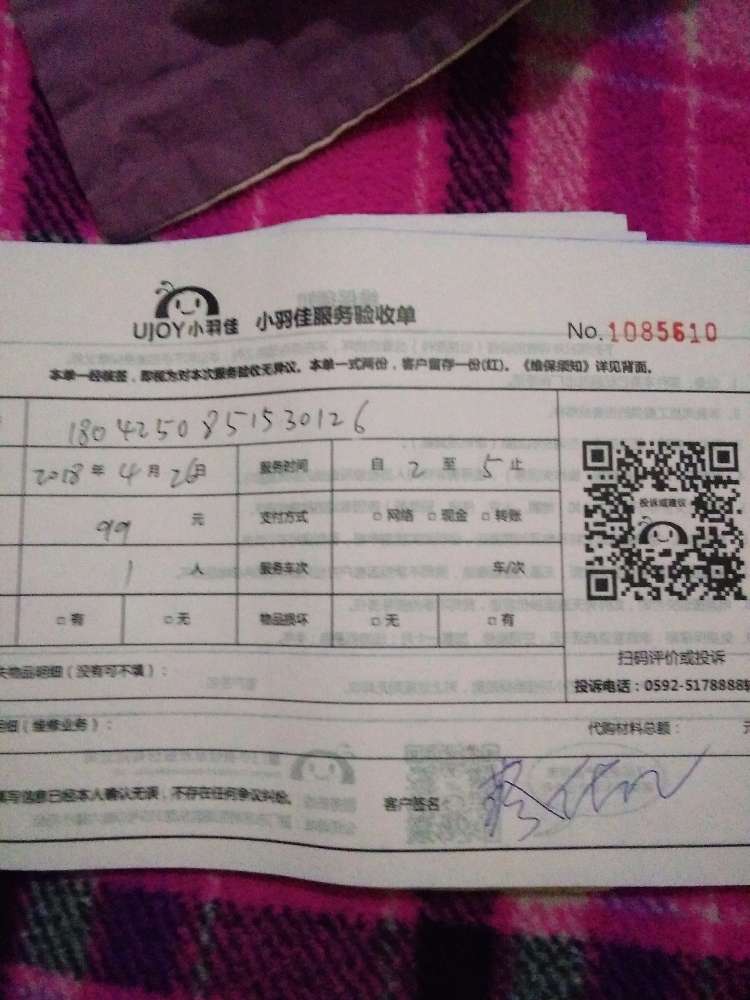 UJOY小羽佳 小羽佳服务验收单 No.1085610
本单一经核签，即视为对本次服务验收无异议。本单一式两份，客户留存一份(红)。《维保须知》详见背面。
180425085151530126
2018年4月26日 服务时间 自2至5止
99元 支付方式 □网络 □现金 □转账
1人 服务车次 车/次
□有 □无 物品损坏 □无 □有
投诉或建议
扫码评价或投诉
失物品明细（没有可不填）： 投诉电话：0592-5178888转
明细（维修业务）： 代购材料总额： 元
填写信息已经本人确认无误，不存在任何争议纠纷。 客户签名：